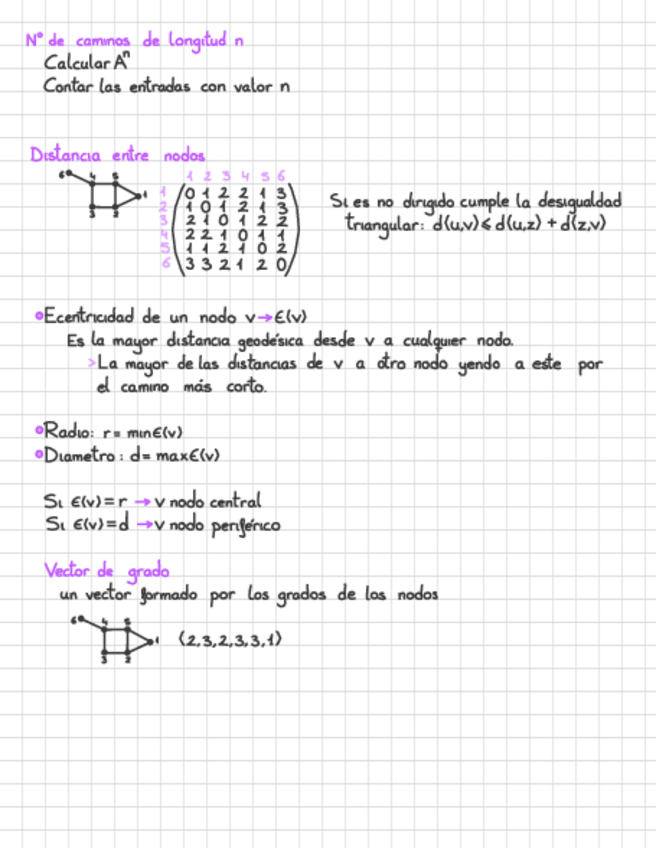 Nº de caminos de longitud n
Calcular Aⁿ
Contar las entradas con valor n
Distancia entre nodos
6 4 5 1 3 2
1 2 3 4 5 6
1 0 1 2 2 1 3
2 1 0 1 2 1 3
3 2 1 0 1 2 2
4 2 2 1 0 1 1
5 1 1 2 1 0 2
6 3 3 2 1 2 0
Si es no dirigido cumple la desigualdad
triangular: d(u,v)≤d(u,z)+d(z,v)
Ecentricidad de un nodo v→Є(v)
Es la mayor distancia geodésica desde v a cualquier nodo.
>La mayor de las distancias de v a otro nodo yendo a este por
el camino más corto.
Radio: r= minЄ(v)
Diametro: d= maxЄ(v)
Si Є(v)=r →v nodo central
Si Є(v)=d →v nodo periférico
Vector de grado
un vector formado por los grados de los nodos
6 4 5 1 3 2
(2,3,2,3,3,1)